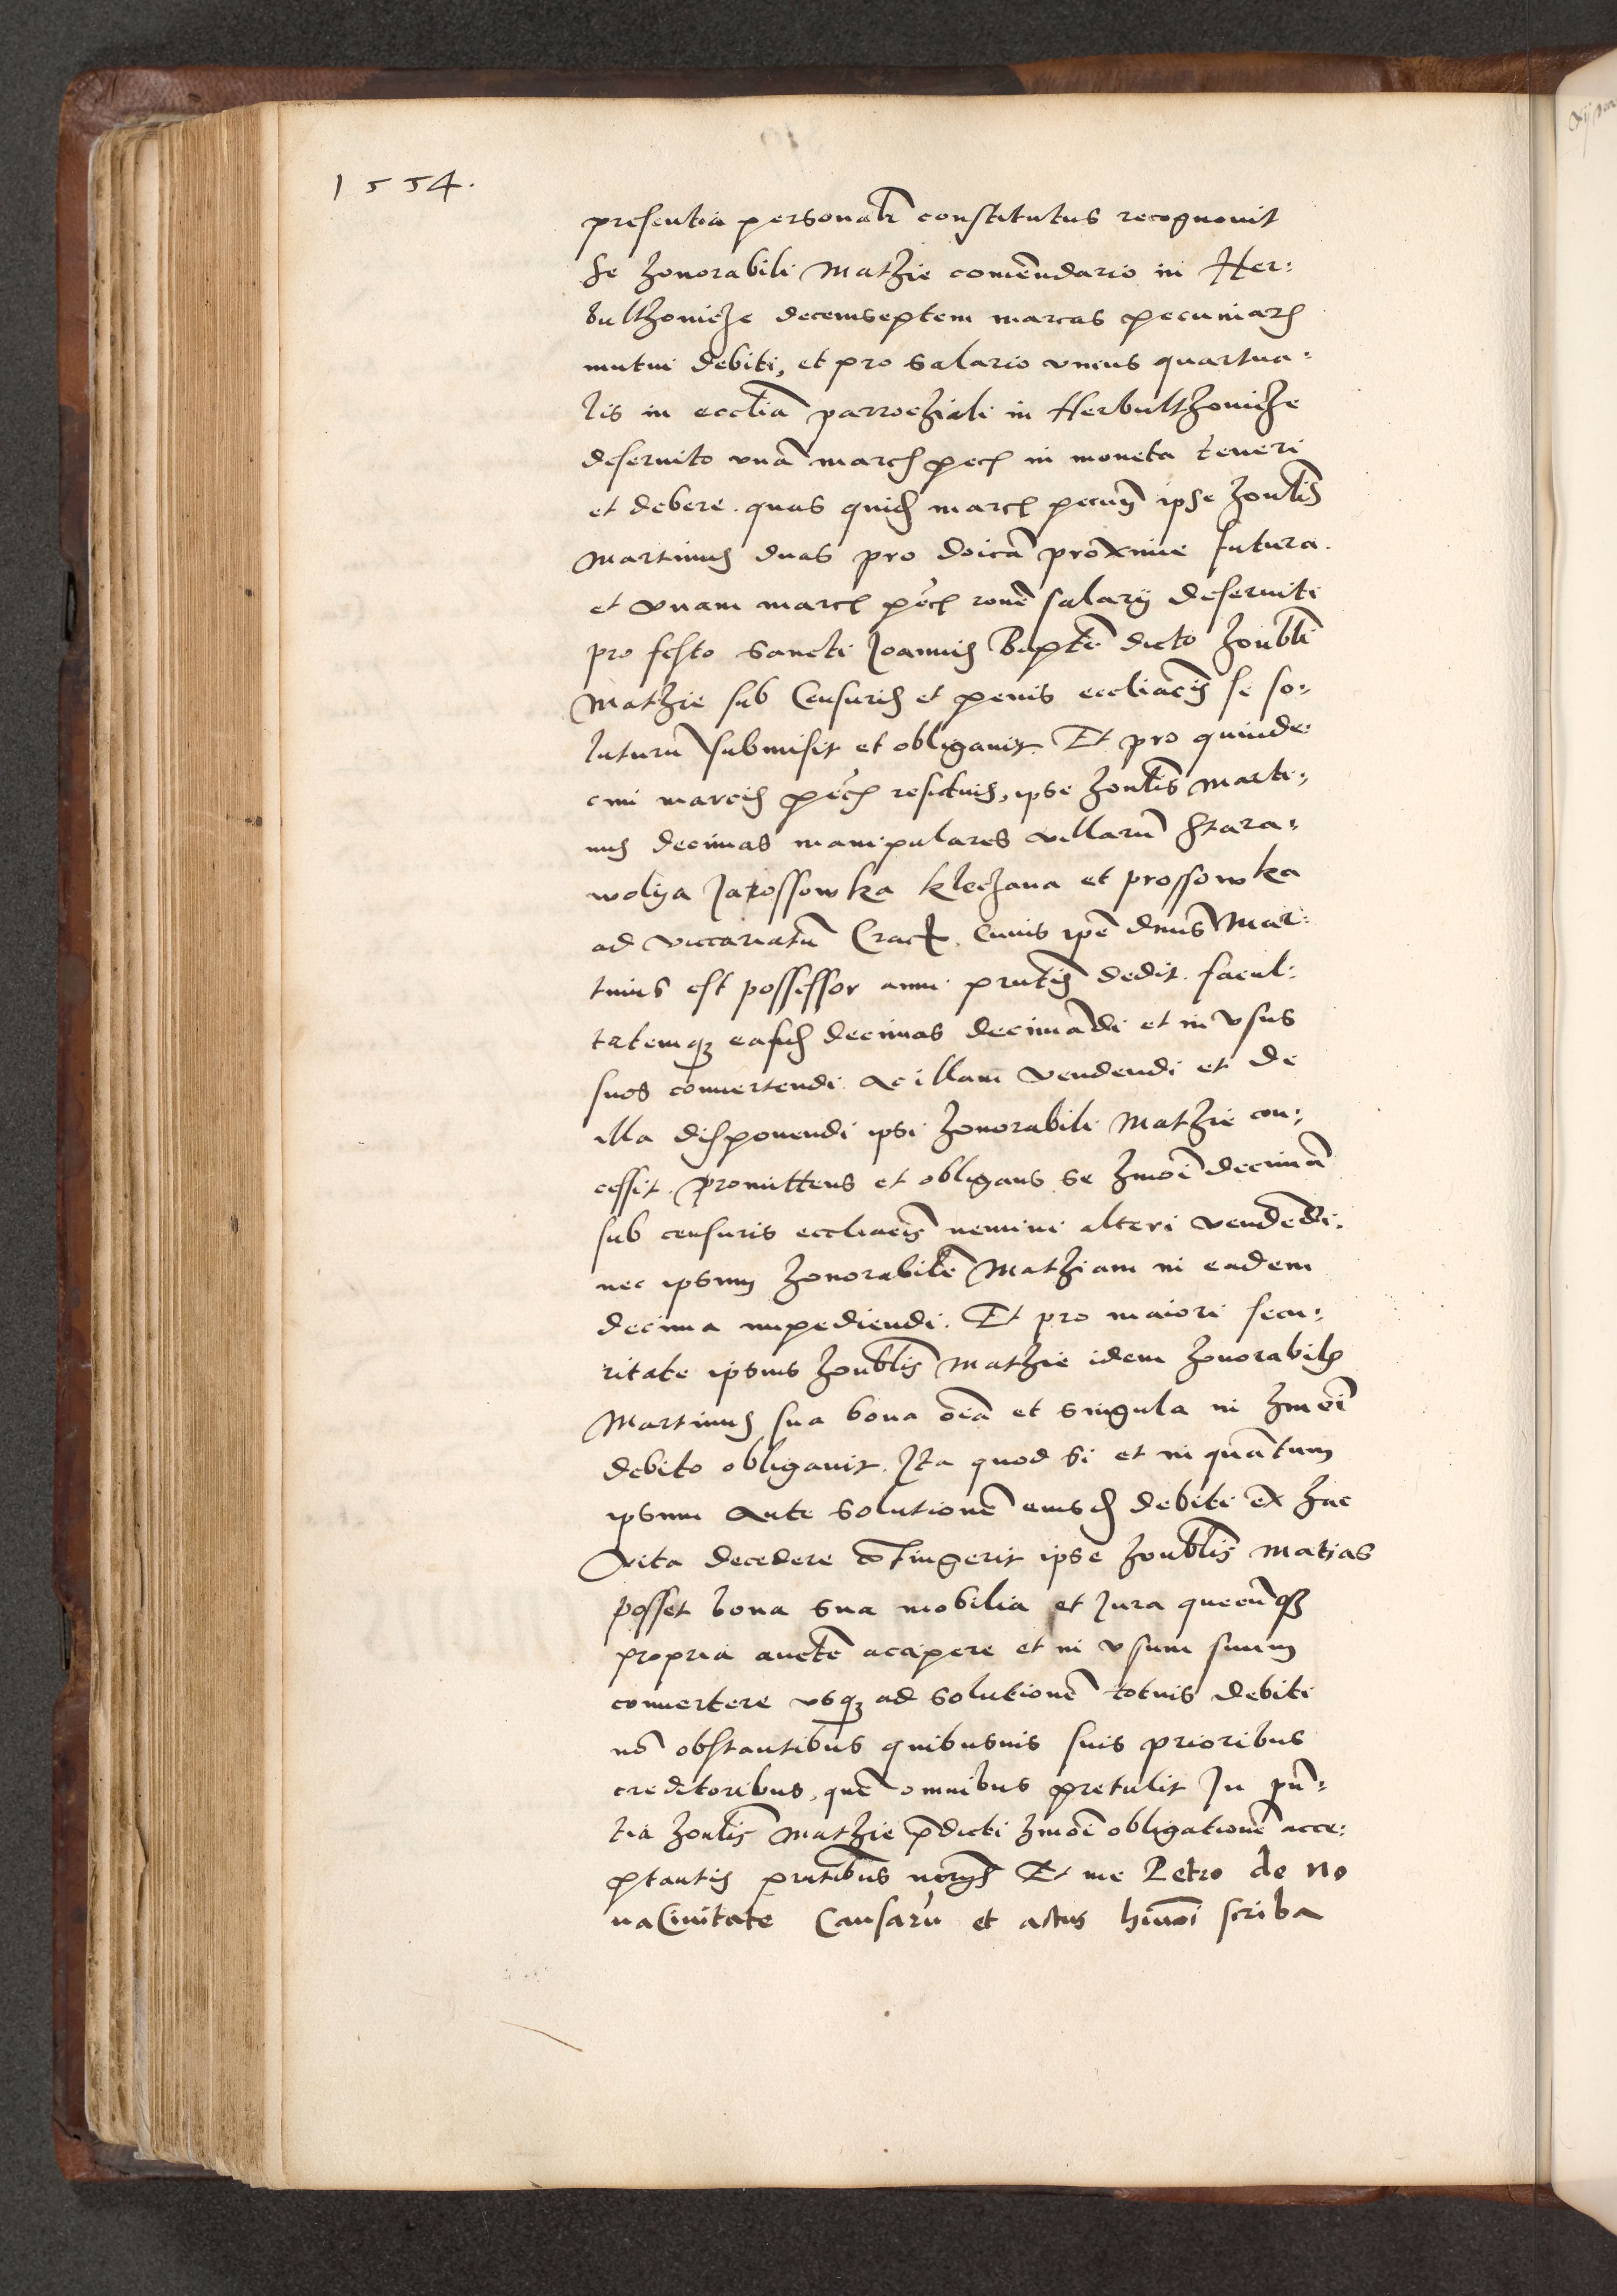 1554.
presentia personalr constitutus recognovit
se honorabili Mathie comendario in Her:
bulthowicze decemseptem marcas pecuniar
mutui debiti, et pro salario unius quartua:
lis in ecclia parrochiali in Herbulthowicze
deservito una marc pec in moneta teneri
et debere. quas quid marc pecun ipse honblis
Martinus duas pro doica proxime futura.
et unam marc pec rone salary deserviti
pro festo sancti Joannis Bapte dicto honbli
Mathie sub Censuris et penis eccliacis se so:
luturu submisit et obligavit. Et pro quinde
cim marcis pec residuis, ipse honblis Marti:
nus decimas manipulares villaru Stara:
wolya Jarossowka kleczana et prossowka
ad viccariatu Crac. cuius ipe dnus Mar:
tinus est possessor anni prntis dedit. facul:
tatemq easd decimas decimadi et in usus
suos convertendi ac illam vendendi et de
illa disponendi ipsi honorabili Mathie con:
cessit. promittens et obligans se hmoi decima
sub censuris eccliacis nemini alteri vendedi.
nec ipsum honorabile Mathiam in eadem
decima impediendi. Et pro maiori secu:
ritate ipsius honblis Mathie idem honorabilis
Martinus sua bona oia et singula in hmoi
debito obligavit. Ita quod si et in quatum
ipsum ante solutione eiusd debiti ex hac
vita decedere cotingerit ipse honblis Matias
posset bona sua mobilia et Jura quecuq
propria aucte accipere et in usum suum
convertere usq ad solutione totius debiti
no obstantibus quibusvis suis prioribus
creditoribus, que omnibus pretulit In pn:
tia honblis Mathie pdicti hmoi obligatione acce:
ptantis prntibus Et me Petro de No
va Civitate Causaru et actus hmoi scriba